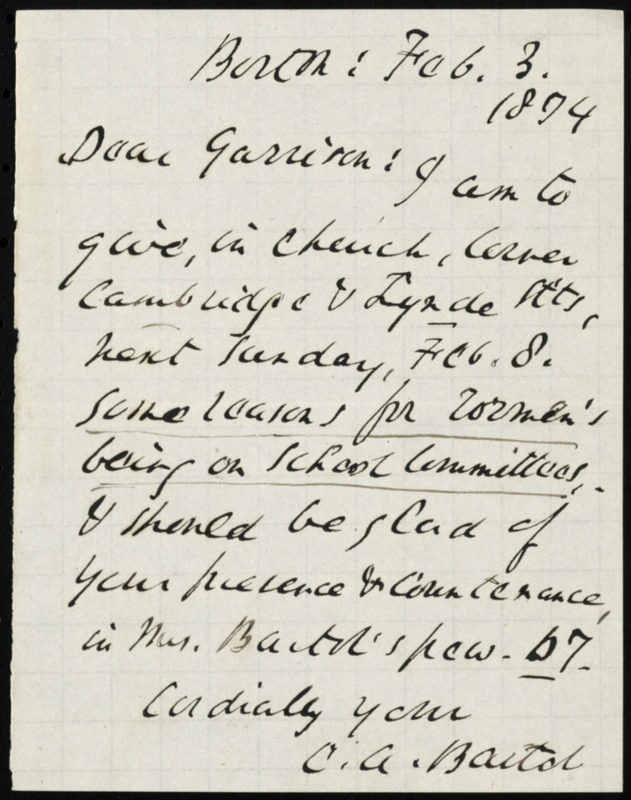 Boston: Feb. 3.
1874
Dear Garrison: I am to
give, in church, corner
Cambridge & Lynde Sts,
next Sunday, Feb. 8.
some reasons for women's
being on School Committees,
& should be glad of
your presence & countenance,
in Mrs. Bartol's pew. 67.
Cordially your
C. A. Bartol